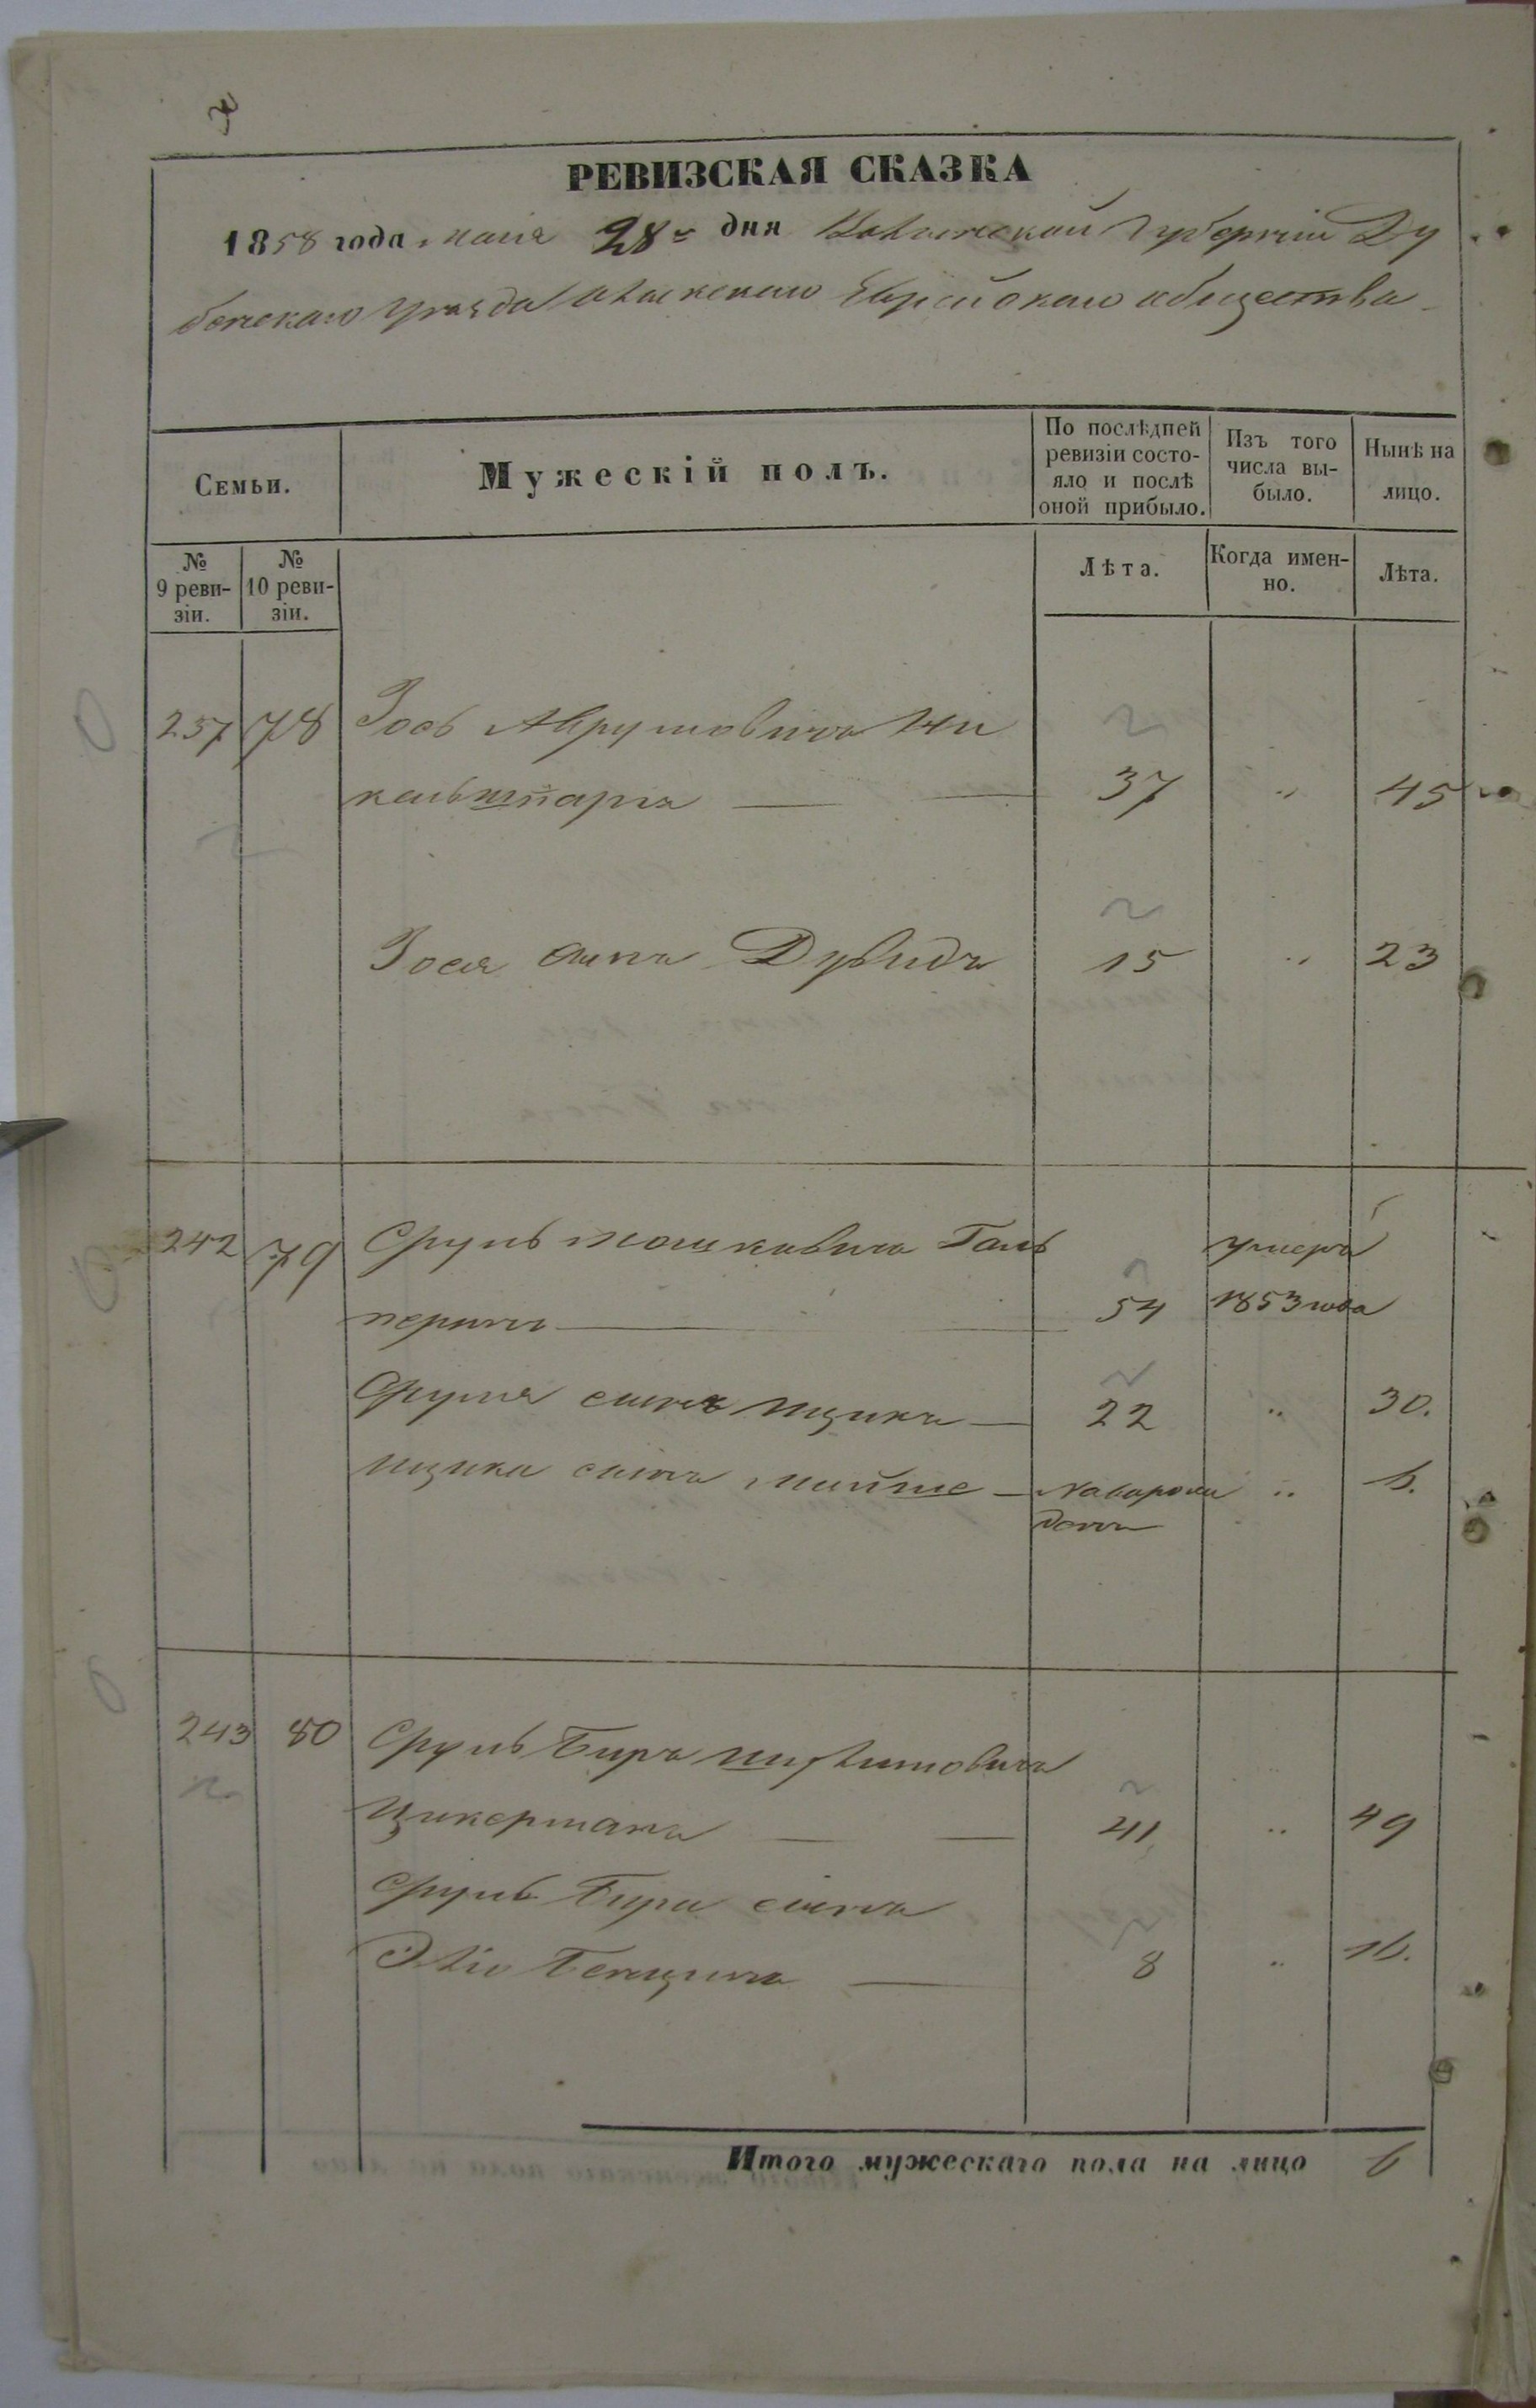 РЕВИЗСКАЯ СКАЗКА
1858 года маія 28го дня Волынской Губерніи Ду
бенскаго уѣзда Олыкскаго Еврейскаго общества
Семьи.
Мужескій полъ.
По послѣдней ревизіи состо-
яло и послѣ оной прибыло.
Изъ того числа вы-
было.
Нынѣ на лицо.
№ 9 реви-
зіи.
№ 10 реви-
зіи.
Лѣта.
Когда имен-
но.
Лѣта.
237 78 Іось Аврумовичъ
37 " 45
Іося сынъ Дувидъ 15 " 23
242 79 Сруль Мошковичъ Галь
перинъ 54 умеръ 1853 года
Сруля сынъ Ицикъ 22 " 30.
Ицика сынъ Мойше новорож
денъ " 6.
243 80 Сруль Беръ
Цикерманъ 41 " 49
Сруль Бера сынъ
Эліо Бенционъ 8 " 16.
Итого мужескаго пола на лицо 6